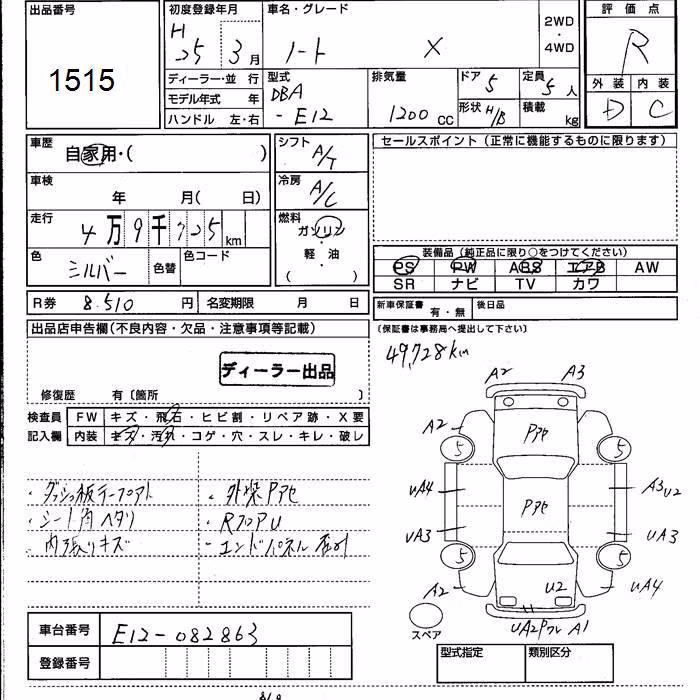 出品番号
1515
初度登録年月
H 25 3月
車名・グレード
ノート X
2WD
・
4WD
評価点
R
外装 内装
D C
ディーラー・並行
モデル年式 年
ハンドル 左・右
型式
DBA
- E12
排気量
1200cc
ドア 5
定員 5人
形状 H/B
積載 kg
車歴
自家用・( )
車検
年 月( 日)
走行
4万9千725km
色
シルバー
色替
色コード
シフト
A/T
冷房
A/C
燃料
ガソリン
・
軽油
( )
セールスポイント(正常に機能するものに限ります)
装備品(純正品に限り○をつけてください)
PS PW ABS エアB AW
SR ナビ TV カワ
R券 8,510円
名変期限 月 日
新車保証書 有・無
後日品
(保証書は事務局へ提出して下さい)
出品店申告欄(不良内容・欠品・注意事項等記載)
ディーラー出品
修復歴 有〔箇所 〕
検査員
記入欄
FW キズ・飛石・ヒビ割・リペア跡・X要
内装 キズ・汚れ・コゲ・穴・スレ・キレ・破レ
・シート角ヘタリ
・内張りキズ
・外板Pアセ
・RフロアU
・エンドパネル
49,728km
A2 A3
A2 Pアセ
5 5
UA4 Pアセ A3 U2
UA3 UA3
5 5
A2 U2 UA4
A1
スペア
車台番号 E12-082863
登録番号
型式指定 類別区分